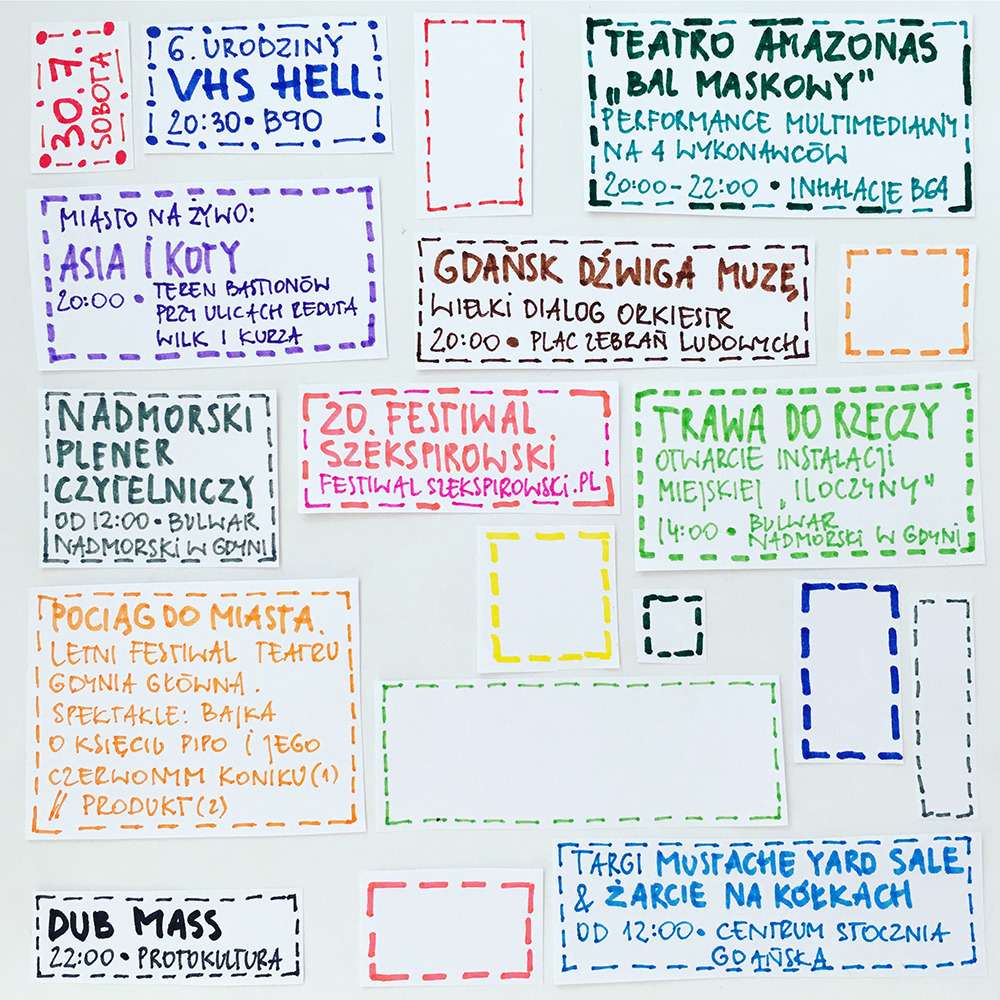 30.7.
SOBOTA
6. URODZINY
VHS HELL
20:30 • B90
TEATRO AMAZONAS
„BAL MASKOWY"
PERFORMANCE MULTIMEDIALNY
NA 4 WYKONAWCÓW
20:00 - 22:00 • INHALACJE B64
MIASTO NA ŻYWO:
ASIA I KOTY
20:00 • TEREN BASTIONÓW
PRZY ULICACH REDUTA
WILK I KURZA
GDAŃSK DŹWIGA MUZĘ
WIELKI DIALOG ORKIESTR
20:00 • PLAC ZEBRAŃ LUDOWYCH
NADMORSKI
PLENER
CZYTELNICZY
OD 12:00 • BULWAR
NADMORSKI W GDYNI
20. FESTIWAL
SZEKSPIROWSKI
FESTIWALSZEKSPIROWSKI.PL
TRAWA DO RZECZY
OTWARCIE INSTALACJI
MIEJSKIEJ „ILOCZYNY"
14:00 • BULWAR
NADMORSKI W GDYNI
POCIĄG DO MIASTA.
LETNI FESTIWAL TEATRU
GDYNIA GŁÓWNA.
SPEKTAKLE: BAJKA
O KSIĘCIU PIPO I JEGO
CZERWONYM KONIKU (1)
// PRODUKT (2)
DUB MASS
22:00 • PROTOKULTURA
TARGI MUSTACHE YARD SALE
& ŻARCIE NA KÓŁKACH
OD 12:00 • CENTRUM STOCZNIA
GDAŃSKA